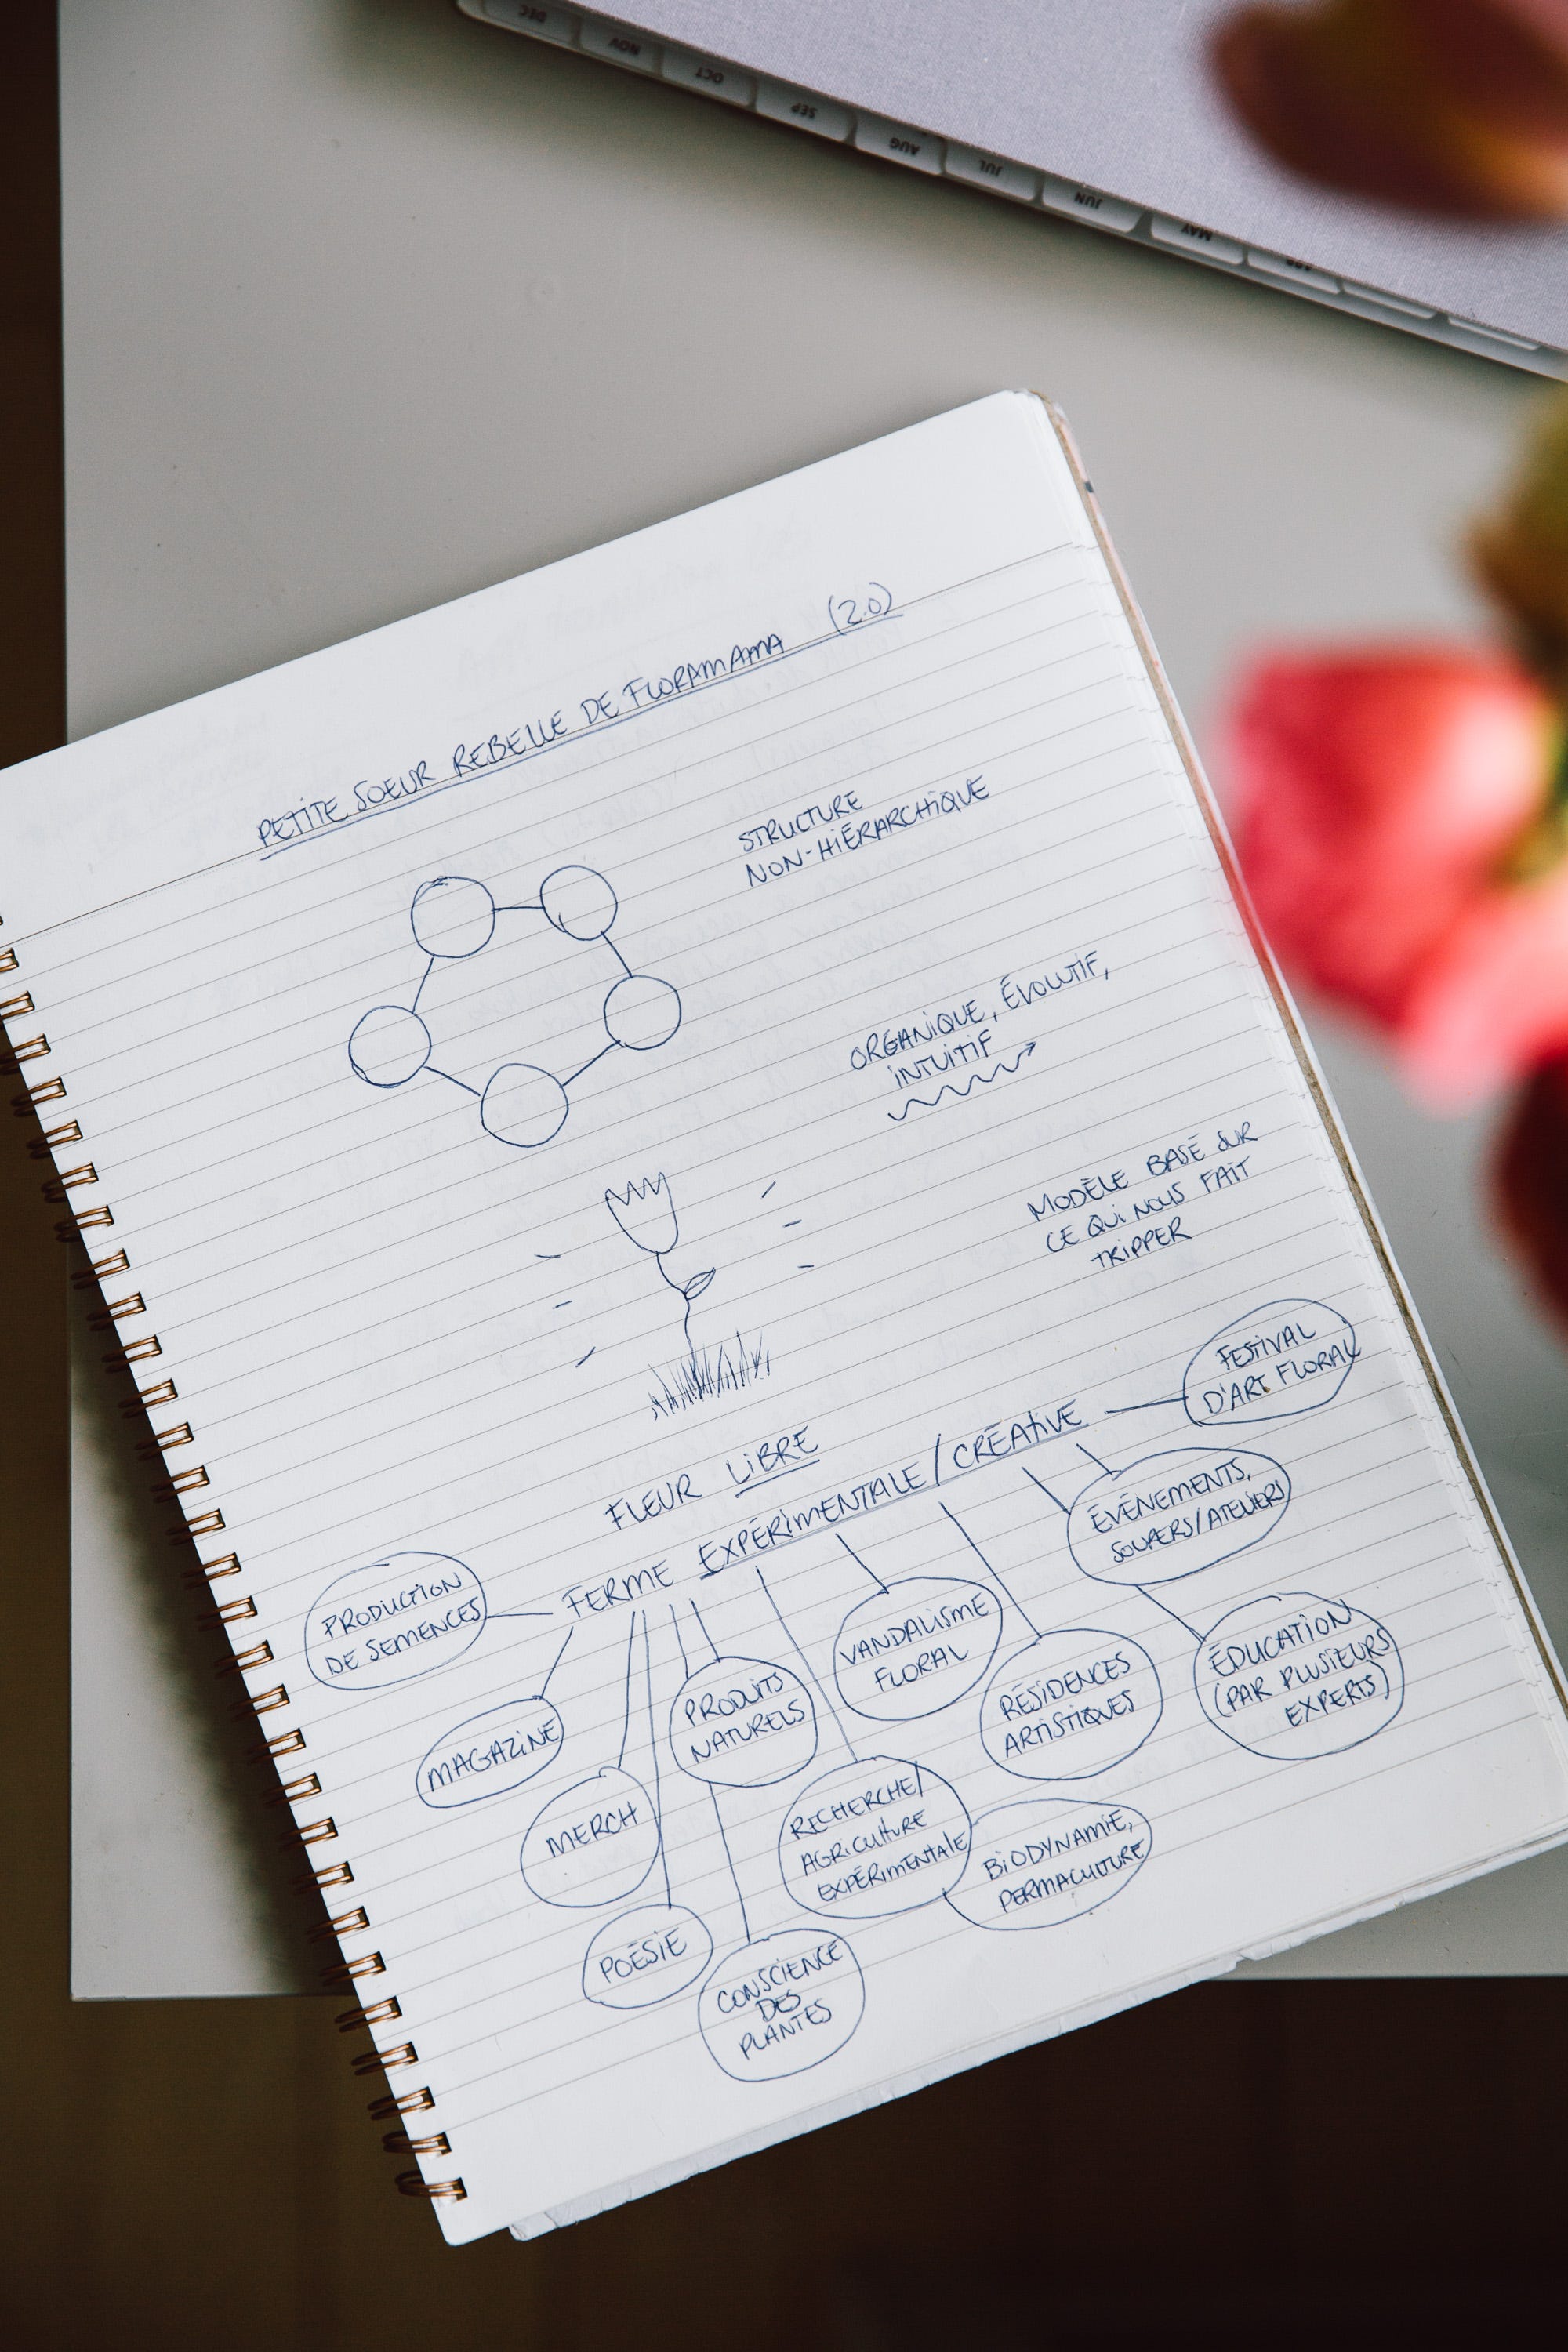 DEC
NOV
OCT
SEP
AUG
JUL
JUN
MAY
APR
PETITE SOEUR REBELLE DE FLORAMAMA (2.0)
STRUCTURE
NON-HIÉRARCHIQUE
ORGANIQUE, ÉVOLUTIF,
INTUITIF
MODÈLE BASÉ SUR
CE QUI NOUS FAIT
TRIPPER
FLEUR LIBRE
FERME EXPÉRIMENTALE/CRÉATIVE
FESTIVAL
D'ART FLORAL
ÉVÉNEMENTS,
SOUPERS/ATELIERS
ÉDUCATION
(PAR PLUSIEURS
EXPERTS)
PRODUCTION
DE SEMENCES
MAGAZINE
MERCH
POÉSIE
PRODUITS
NATURELS
CONSCIENCE
DES
PLANTES
VANDALISME
FLORAL
RECHERCHE/
AGRICULTURE
EXPÉRIMENTALE
BIODYNAMIE,
PERMACULTURE
RÉSIDENCES
ARTISTIQUES